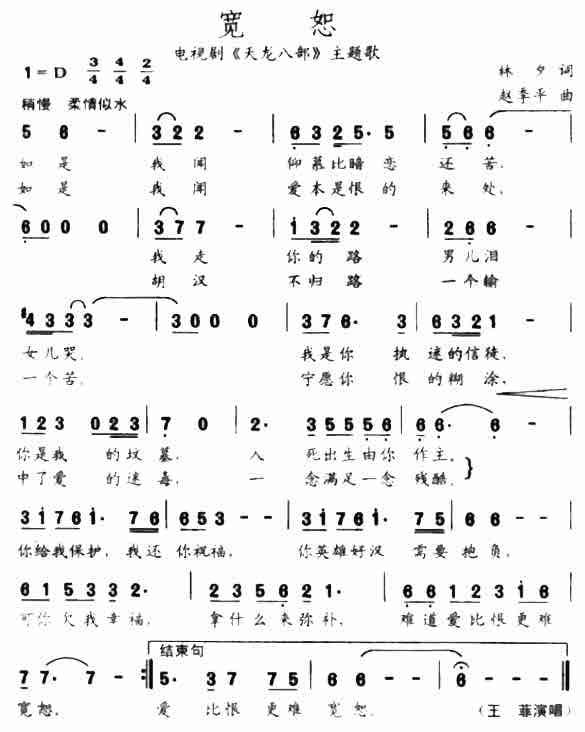 宽 恕
电视剧《天龙八部》主题歌
1=D 3/4 4/4 2/4
林 夕 词
赵季平 曲
稍慢 柔情似水
5 6 - | 3 2 2 - | 6 3 2 5· 5 | 5 6 6 -
如 是 我 闻 仰 慕 比 暗 恋 还 苦,
如 是 我 闻 爱 本 是 恨 的 来 处,
6 0 0 0 | 3 7 7 - | 1 3 2 2 - | 2 6 6 -
我 走 你 的 路 男 儿 泪
胡 汉 不 归 路 一 个 输
#4 3 3 3 - | 3 0 0 0 | 3 7 6· 3 | 6 3 2 1 -
女 儿 哭, 我 是 你 执 迷 的 信 徒,
一 个 苦, 宁 愿 你 恨 的 糊 涂,
1 2 3 0 2 3 | 7 0 | 2· 3 5 5 5 6 | 6 6· 6 -
你 是 我 的 坟 墓, 入 死 出 生 由 你 作 主,
中 了 爱 的 迷 毒, 一 念 满 足 一 念 残 酷,
3 1 7 6 1· 7 6 | 6 5 3 - - | 3 1 7 6 1· 7 5 | 6 - -
你 给 我 保 护, 我 还 你 祝 福, 你 英 雄 好 汉 需 要 抱 负,
6 1 5 3 3 2· | 2 3 5 6 2· | 6 6 1 2 3 1 6
可 你 欠 我 幸 福, 拿 什 么 来 弥 补, 难 道 爱 比 恨 更 难
结束句
7 7· 7 - :‖ 5· 3 7 7 | 5 6 6 - | 6 - - ‖
宽 恕, 爱 比 恨 更 难 宽 恕,
(王 菲演唱)